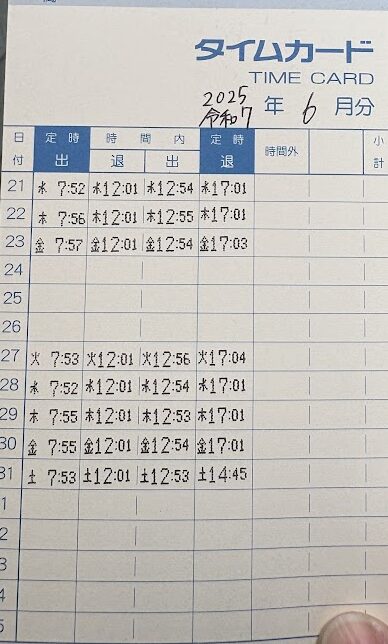 タイムカード
TIME CARD
2025
令和7 年 6 月分
日付 定時出 時間内退 出 定時退 時間外 小計
21 水 7:52 水12:01 水12:54 水17:01
22 木 7:56 木12:01 木12:55 木17:01
23 金 7:57 金12:01 金12:54 金17:03
24
25
26
27 火 7:53 火12:01 火12:56 火17:04
28 水 7:52 水12:01 水12:54 水17:01
29 木 7:55 木12:01 木12:53 木17:01
30 金 7:55 金12:01 金12:54 金17:01
31 土 7:53 土12:01 土12:53 土14:45
1
2
3
4
5